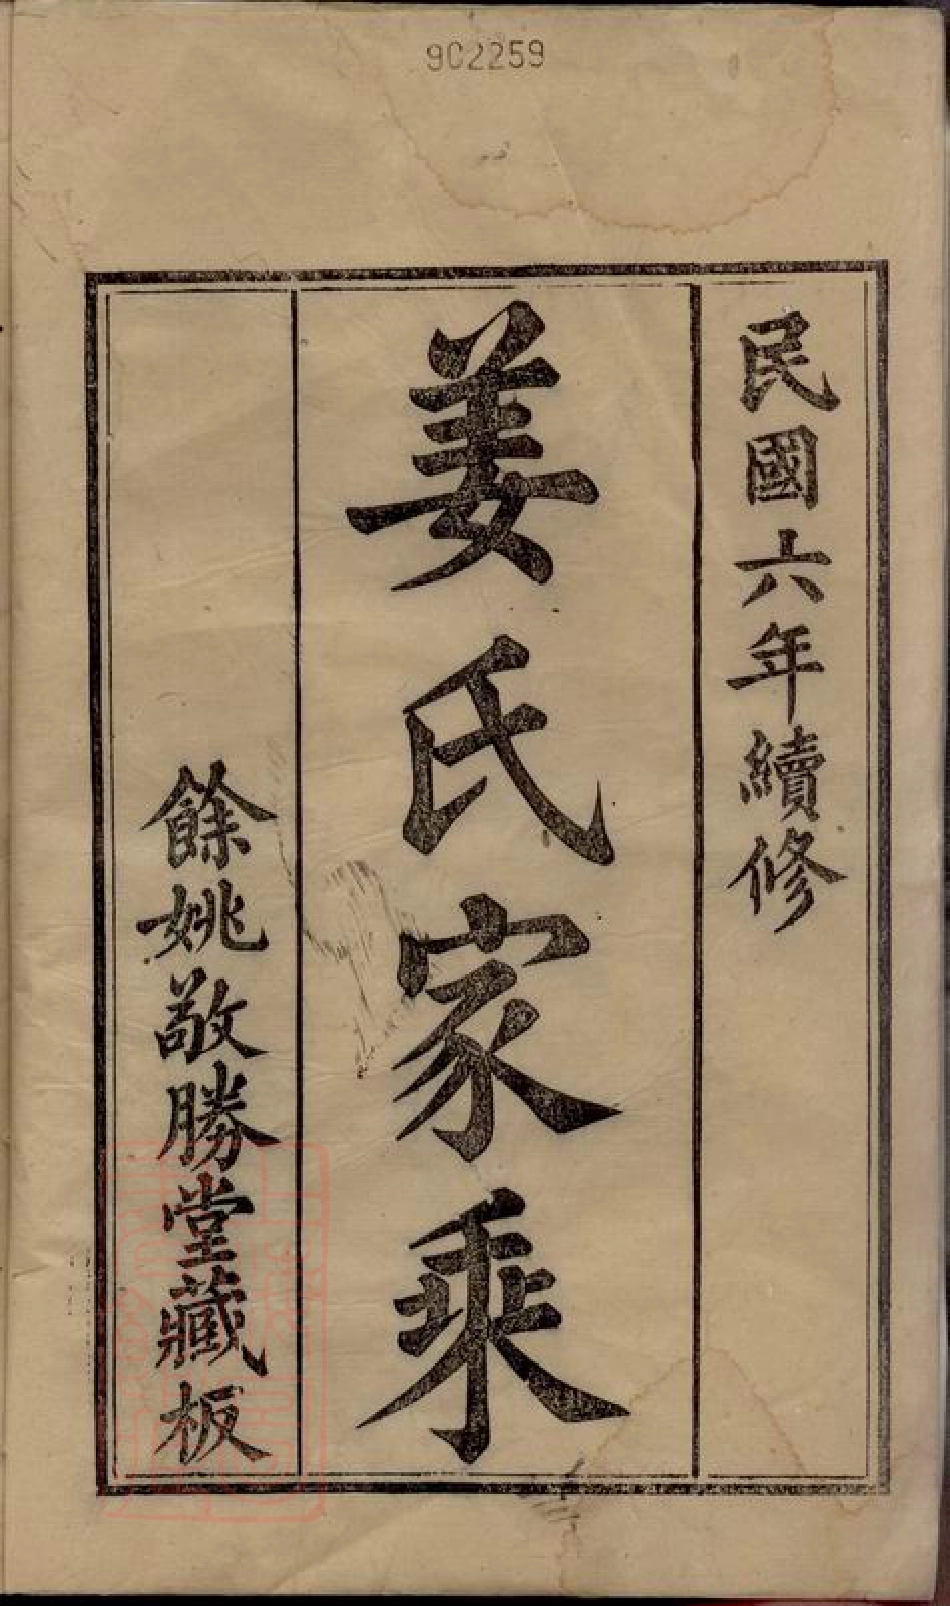 902259
民國六年續修
姜氏家乘
餘姚敬勝堂藏板